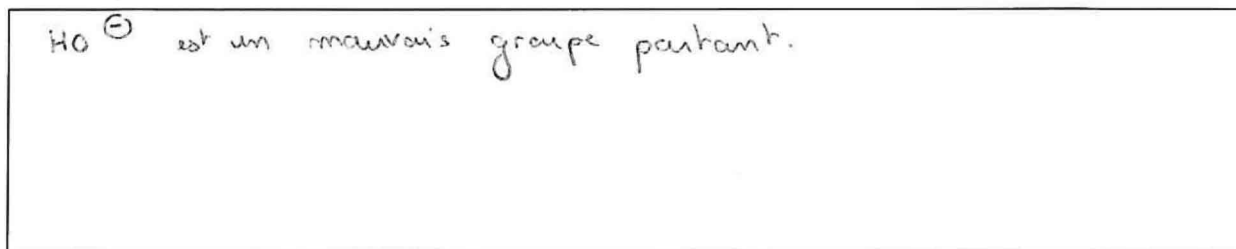 HO⊖ est un mauvais groupe partant.